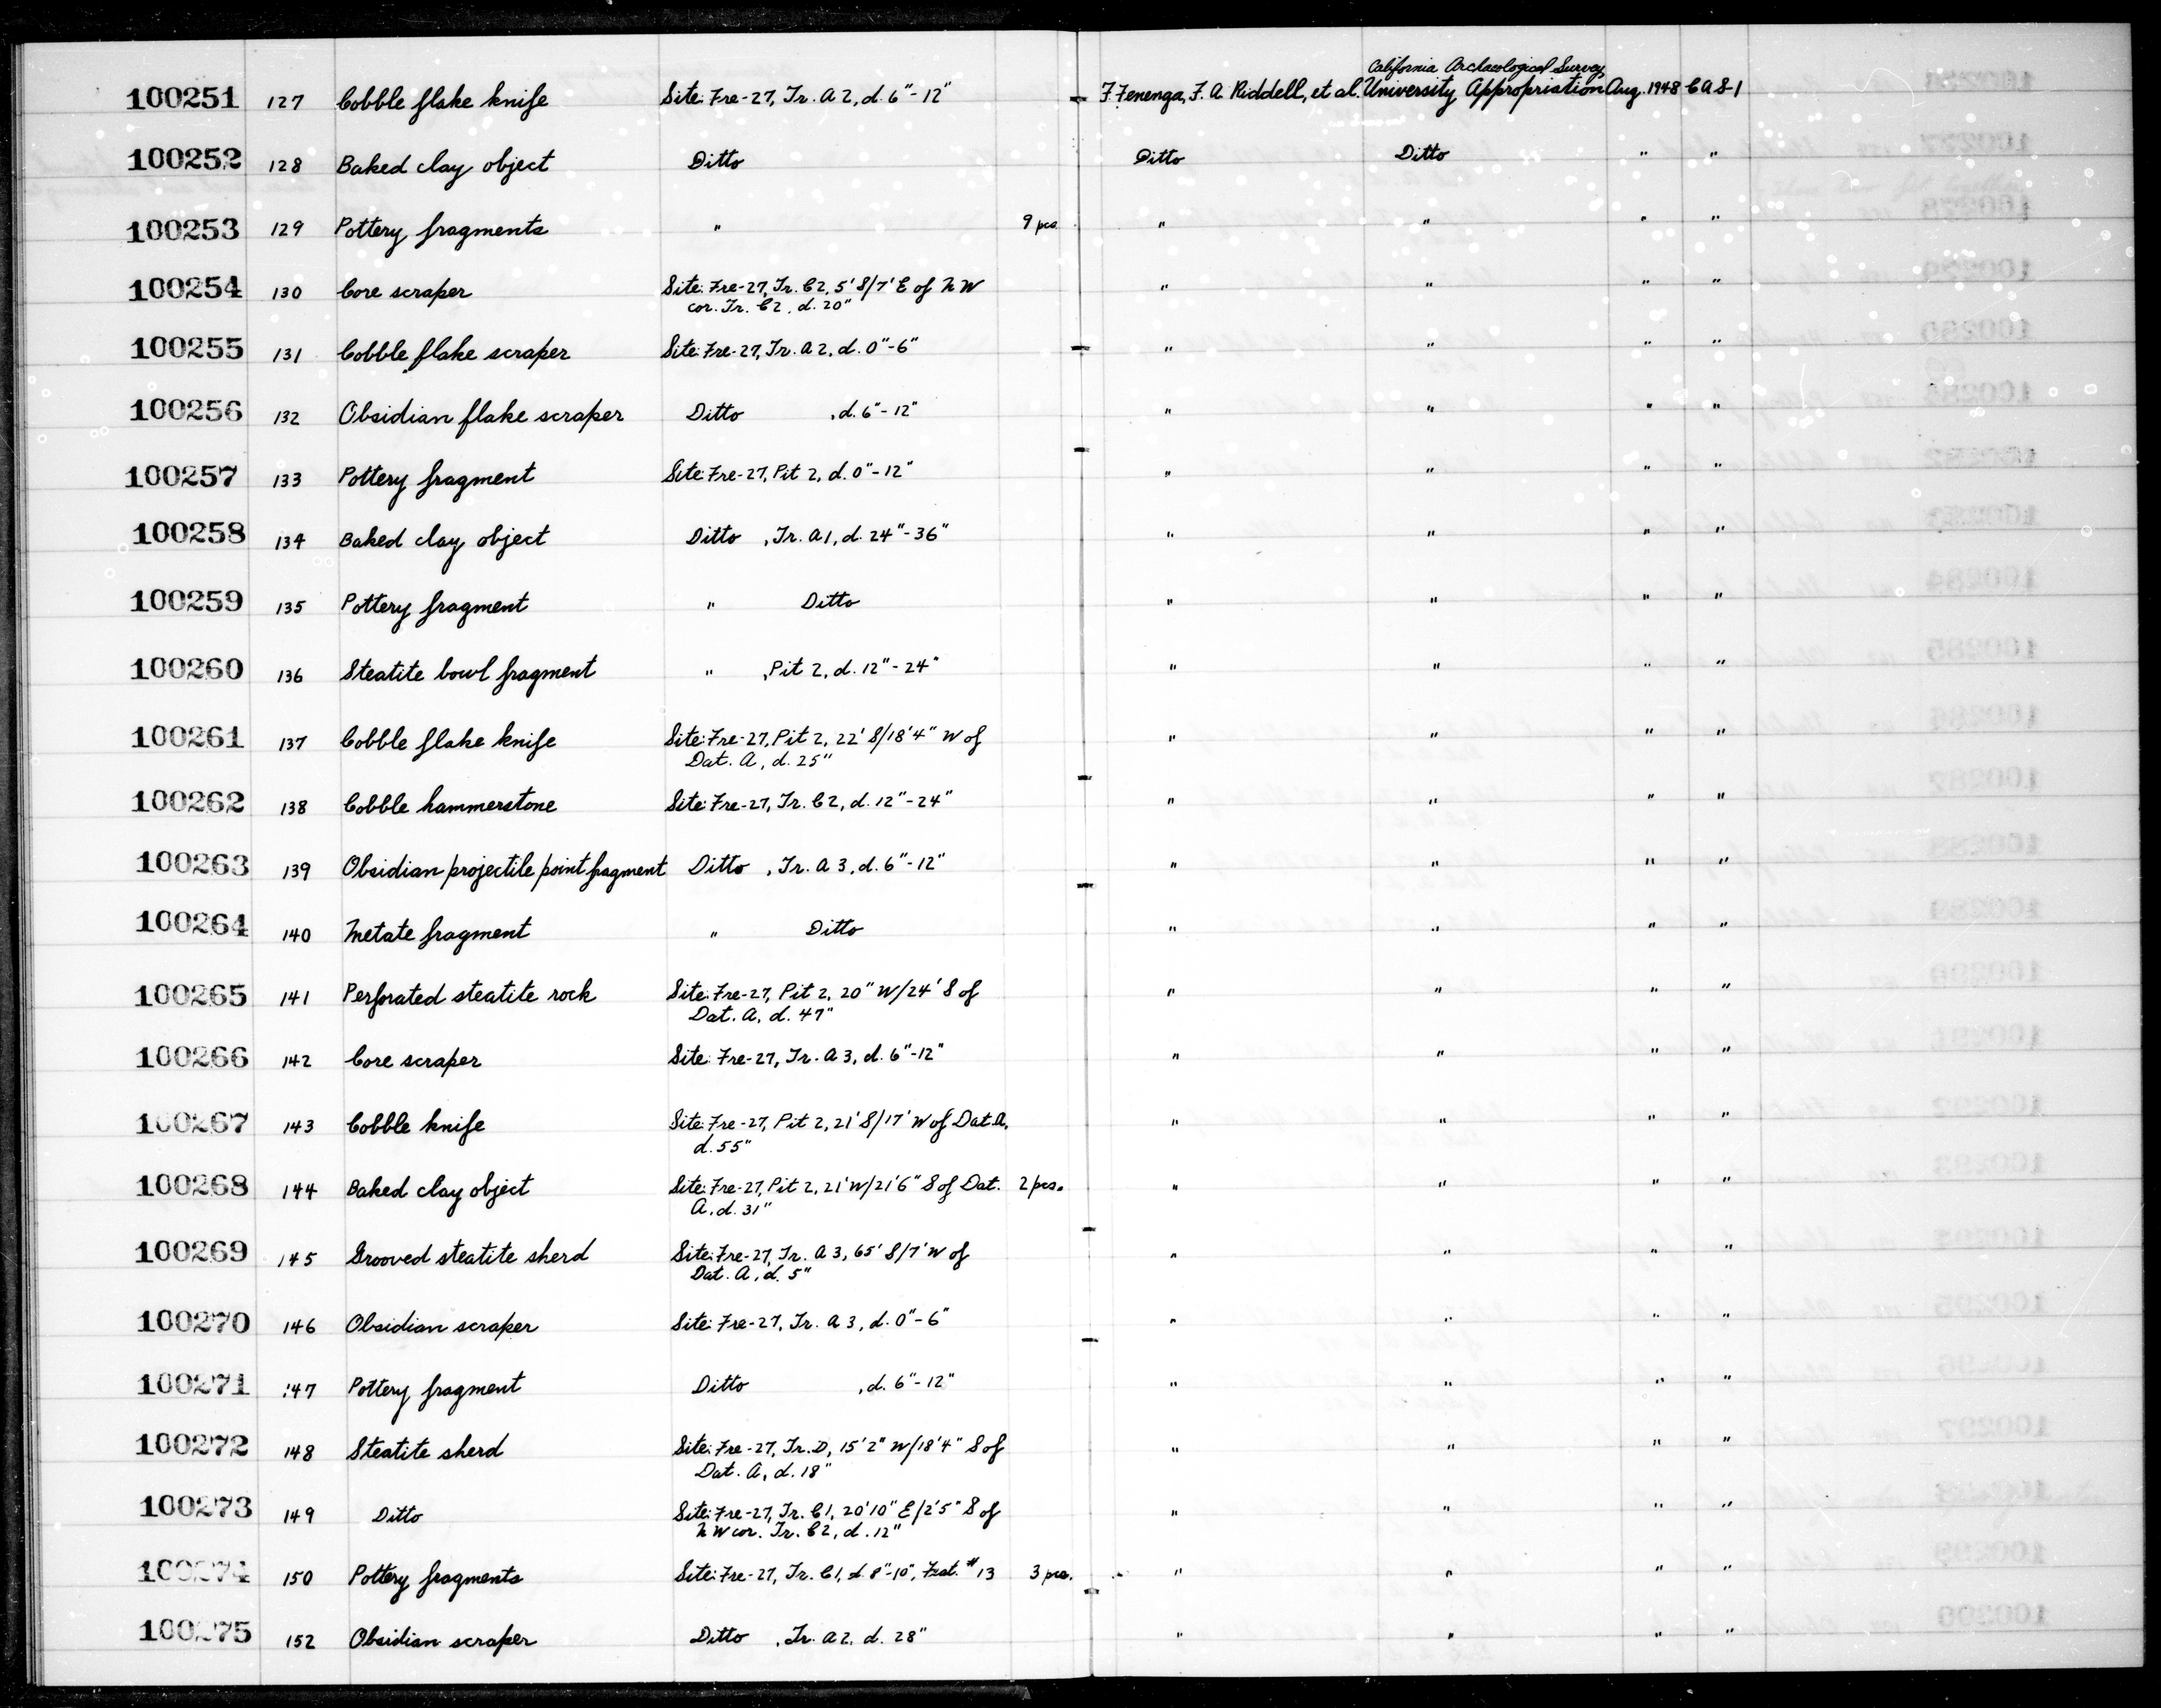 California Archaeological Survey
100251 127 Cobble flake knife Site: Fre-27, Tr. A 2, d. 6"-12" F. Fenenga, F. A. Riddell, et al. University Appropriation Aug. 1948 CAS-1
100252 128 Baked clay object Ditto Ditto Ditto " "
100253 129 Pottery fragments " 9 pcs. " " " "
100254 130 Core scraper Site: Fre-27, Tr. C2, 5' S/7' E of NW " " " "
cor. Tr. C2, d. 20"
100255 131 Cobble flake scraper Site: Fre-27, Tr. A 2, d. 0"-6" " " " "
100256 132 Obsidian flake scraper Ditto , d. 6"-12" " " " "
100257 133 Pottery fragment Site: Fre-27, Pit 2, d. 0"-12" " " " "
100258 134 Baked clay object Ditto , Tr. A1, d. 24"-36" " " " "
100259 135 Pottery fragment " Ditto " " " "
100260 136 Steatite bowl fragment " , Pit 2, d. 12"-24" " " " "
100261 137 Cobble flake knife Site: Fre-27, Pit 2, 22' S/18'4" W of " " " "
Dat. A, d. 25"
100262 138 Cobble hammerstone Site: Fre-27, Tr. C2, d. 12"-24" " " " "
100263 139 Obsidian projectile point fragment Ditto , Tr. A 3, d. 6"-12" " " " "
100264 140 Metate fragment " Ditto " " " "
100265 141 Perforated steatite rock Site: Fre-27, Pit 2, 20" W/24' S of " " " "
Dat. A, d. 47"
100266 142 Core scraper Site: Fre-27, Tr. A 3, d. 6"-12" " " " "
100267 143 Cobble knife Site: Fre-27, Pit 2, 21' S/17' W of Dat. A, " " " "
d. 55"
100268 144 Baked clay object Site: Fre-27, Pit 2, 21' W/21'6" S of Dat. 2 pcs. " " " "
A, d. 31"
100269 145 Grooved steatite sherd Site: Fre-27, Tr. A 3, 65' S/7' W of " " " "
Dat. A, d. 5"
100270 146 Obsidian scraper Site: Fre-27, Tr. A 3, d. 0"-6" " " " "
100271 147 Pottery fragment Ditto , d. 6"-12" " " " "
100272 148 Steatite sherd Site: Fre-27, Tr. D, 15'2" W/18'4" S of " " " "
Dat. A, d. 18"
100273 149 Ditto Site: Fre-27, Tr. C1, 20'10" E/2'5" S of " " " "
NW cor. Tr. C2, d. 12"
100274 150 Pottery fragments Site: Fre-27, Tr. C1, d. 8"-10", Feat. #13 3 pcs. " " " "
100275 152 Obsidian scraper Ditto , Tr. A2, d. 28" " " " "